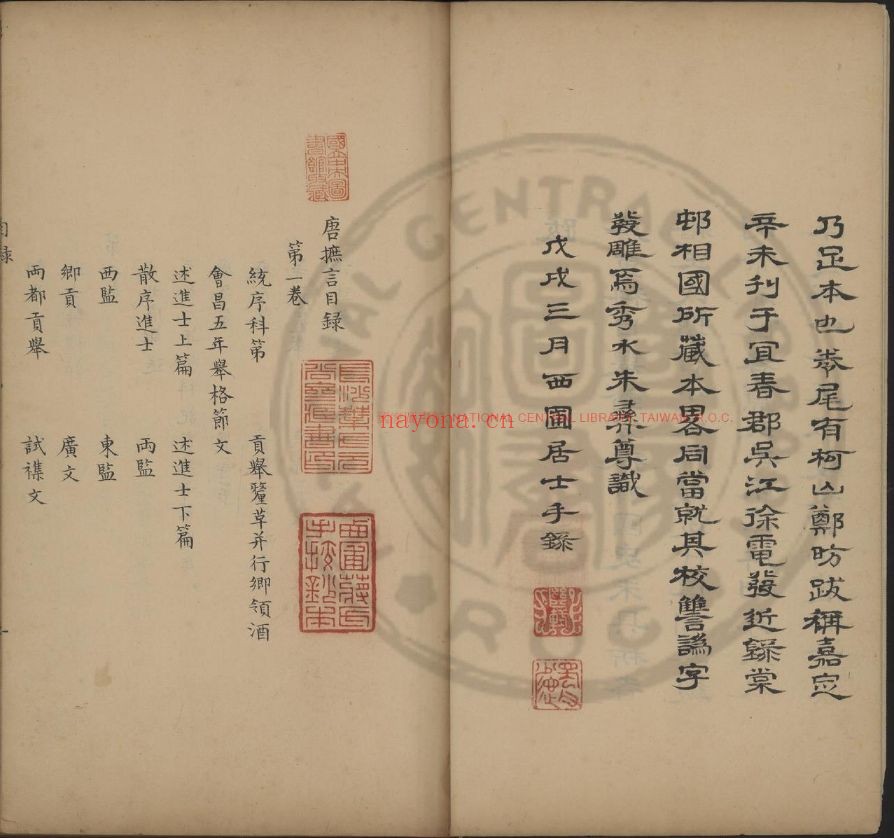 乃足本也卷尾有柯山鄭昉跋稱嘉定
辛未刋于宜春郡吳江徐電發近錄棠
邨相國所藏本畧同當就其校讐譌字
發雕焉秀水朱彞尊識
戊戌三月西圃居士手錄
國立中央圖書館收藏
唐摭言目録
第一卷
統序科第 貢舉釐革并行鄉領酒
會昌五年舉格節文
述進士上篇 述進士下篇
散序進士 兩監
西監 東監
鄉貢 廣文
兩都貢舉 試襍文
目録
一
西圃蔣氏手校鈔本
NATIONAL CENTRAL LIBRARY, TAIWAN, R.O.C.
nayona.cn
NATIONAL CENTRAL LIBRARY
R.O.C.